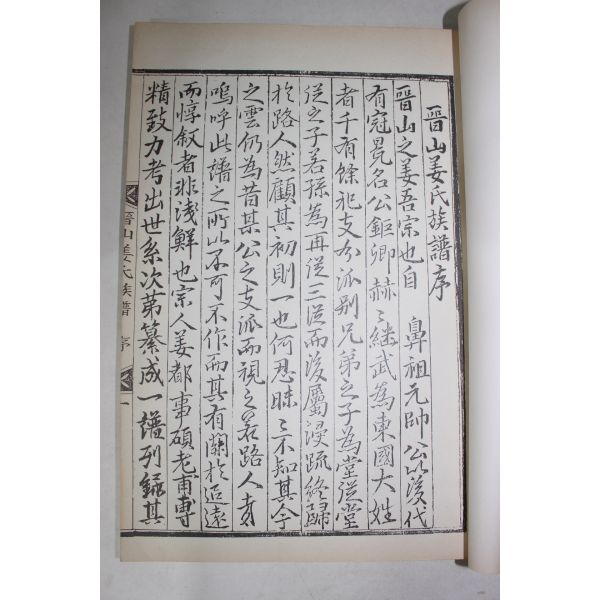 晉山姜氏族譜序
晉山之姜吾宗也自 鼻祖元帥 公以後代
有冠冕名公鉅卿赫〻繼武為東國大姓
者千有餘祀支分派別兄弟之子為堂從堂
從之子若孫為再從三從而後屬浸疏終歸
於路人然顧其初則一也何忍昧〻不知其今
之雲仍為昔某公之支派而視之若路人哉
嗚呼此譜之所以不可不作而其有關於追遠
而惇敘者非淺鮮也宗人姜都事碩老甫專
精致力考出世系次第纂成一譜列錄其
晉山姜氏族譜 序 一